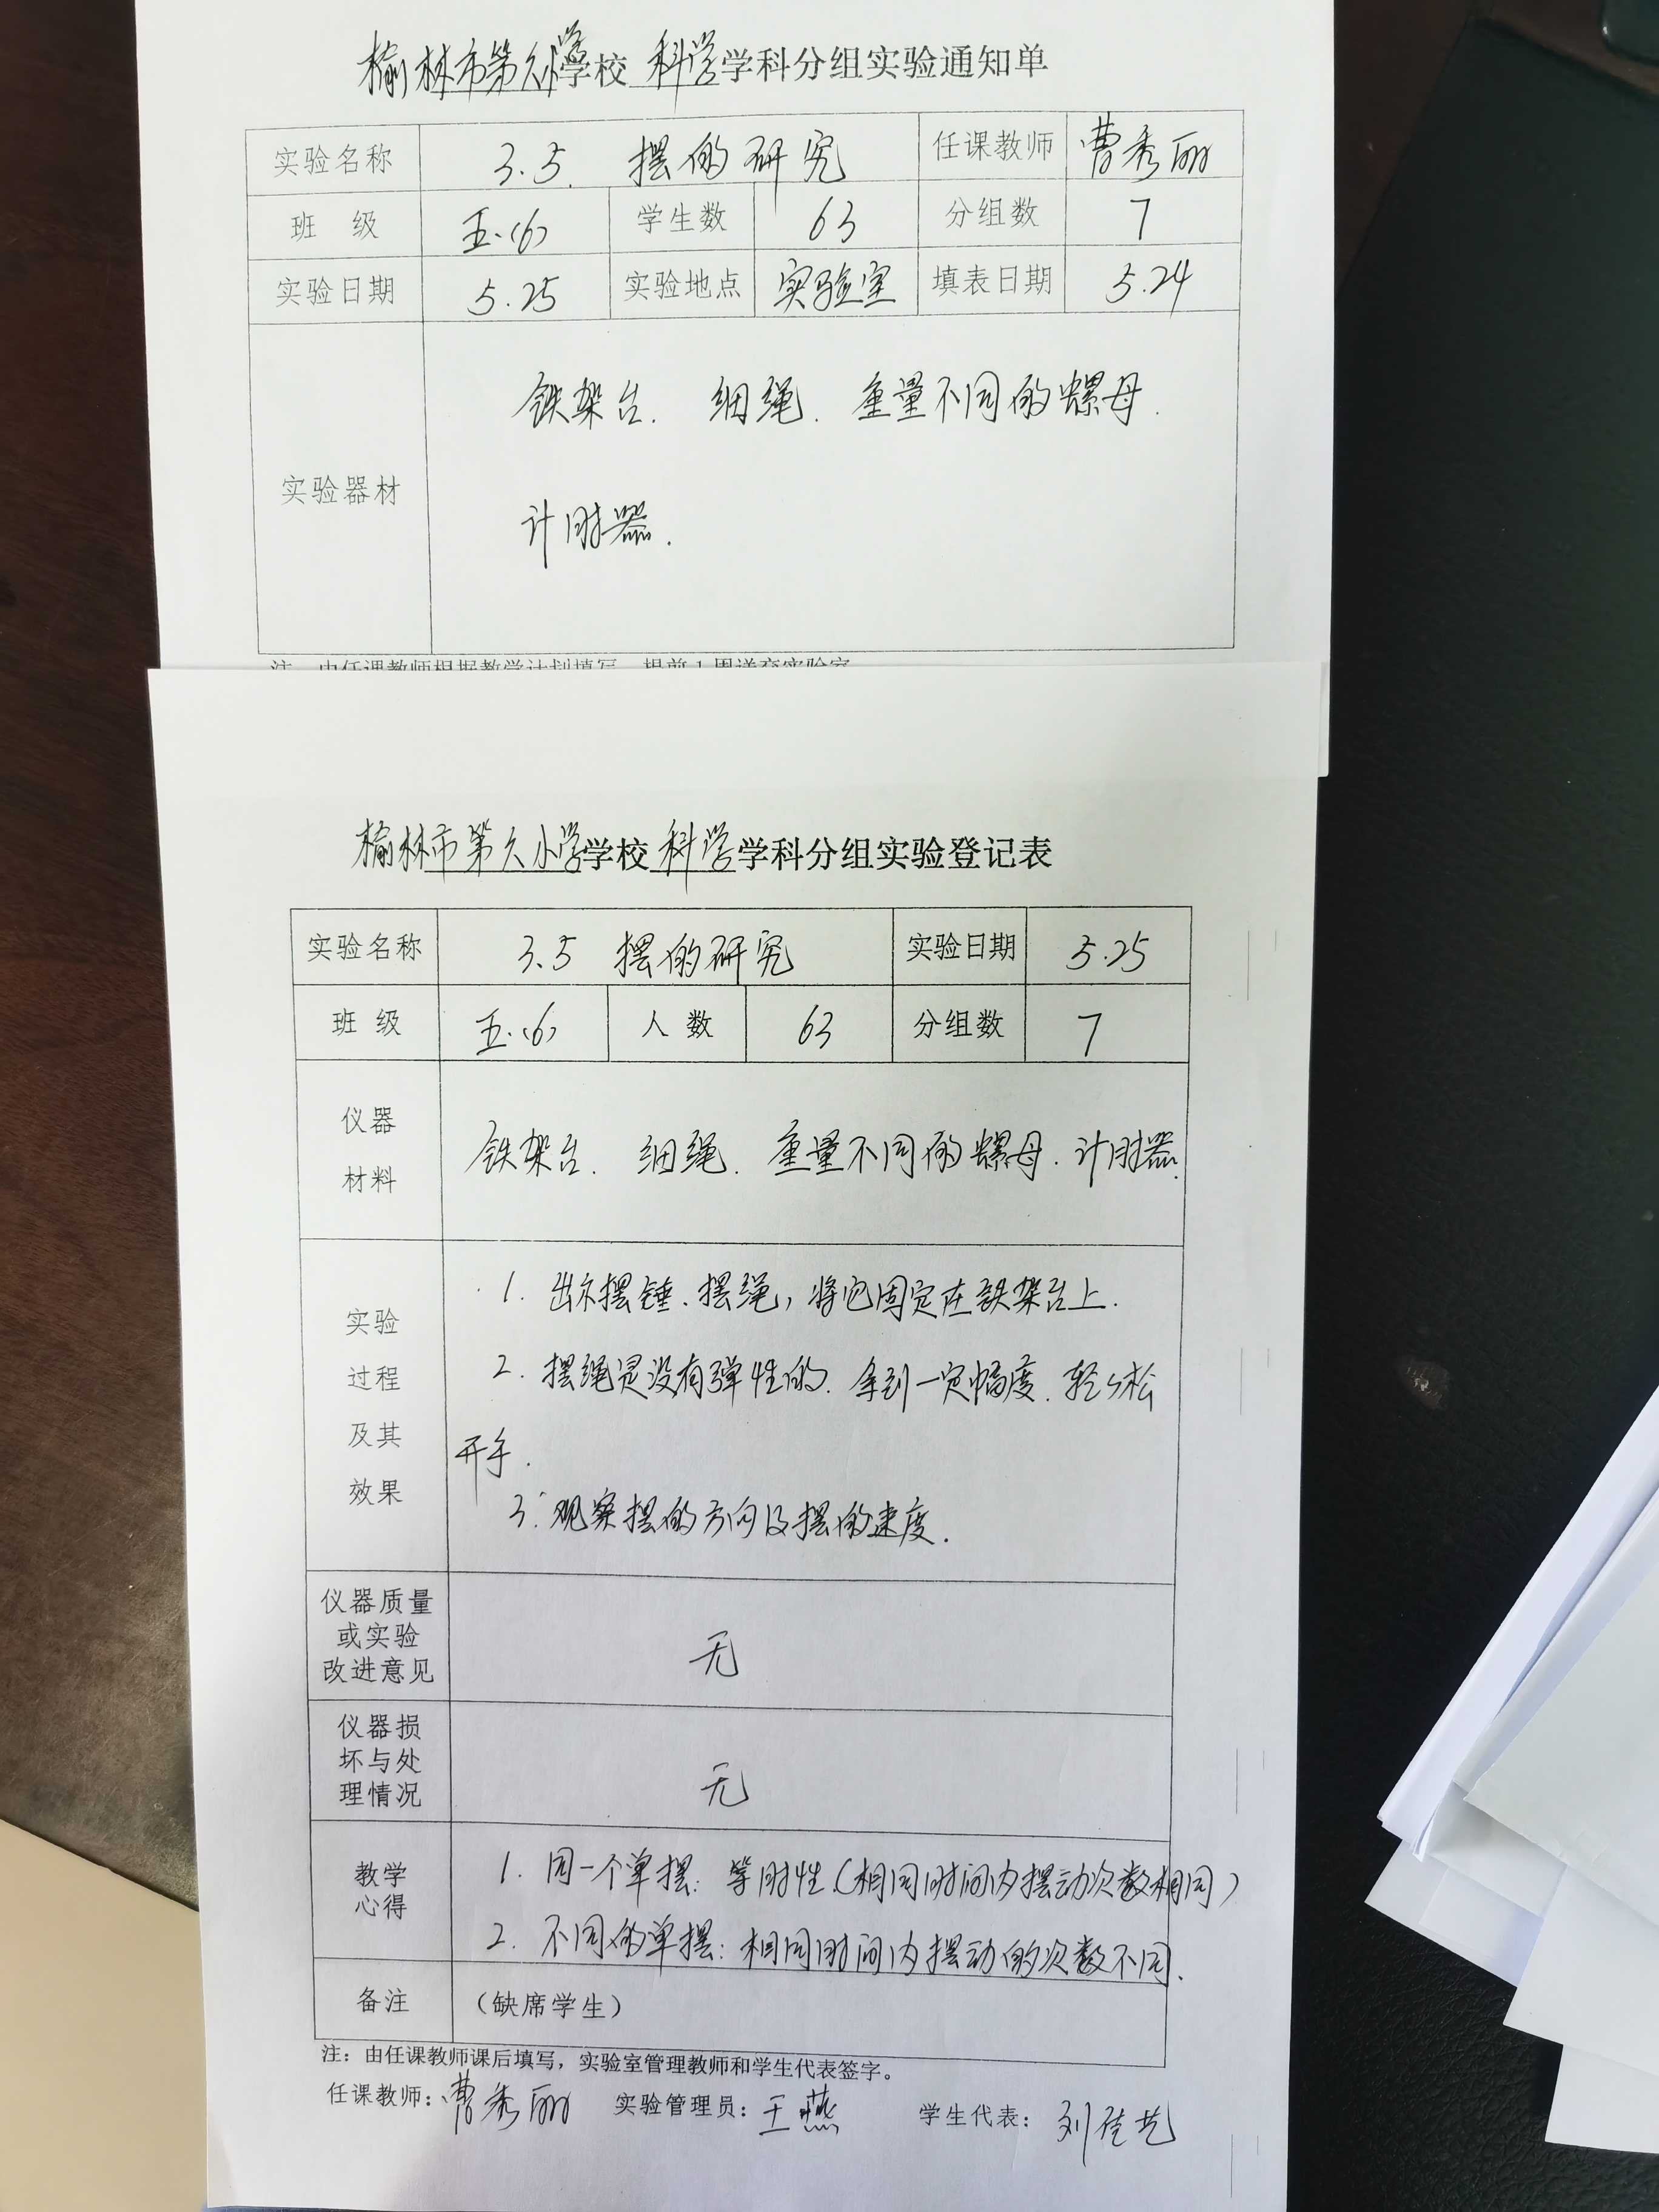 榆林市第九小学学校 科学学科分组实验通知单
实验名称 3.5. 摆的研究 任课教师 曹秀丽
班 级 五.(6) 学生数 63 分组数 7
实验日期 5.25 实验地点 实验室 填表日期 5.24
实验器材 铁架台. 细绳. 重量不同的螺母.
计时器.
注：由任课教师根据教学计划填写，提前1周送交实验室
榆林市第九小学学校 科学学科分组实验登记表
实验名称 3.5 摆的研究 实验日期 5.25
班 级 五.(6) 人 数 63 分组数 7
仪器
材料
铁架台. 细绳. 重量不同的螺母. 计时器.
实验
过程
及其
效果
1. 出示摆锤、摆绳，将它固定在铁架台上.
2. 摆绳是没有弹性的. 拿到一定幅度. 轻轻松
开手.
3. 观察摆的方向及摆的速度.
仪器质量
或实验
改进意见
无
仪器损
坏与处
理情况
无
教学
心得
1. 同一个单摆：等时性（相同时间内摆动次数相同）
2. 不同的单摆：相同时间内摆动的次数不同.
备注 （缺席学生）
注：由任课教师课后填写，实验室管理教师和学生代表签字。
任课教师：曹秀丽 实验管理员：王燕 学生代表：刘佳艺